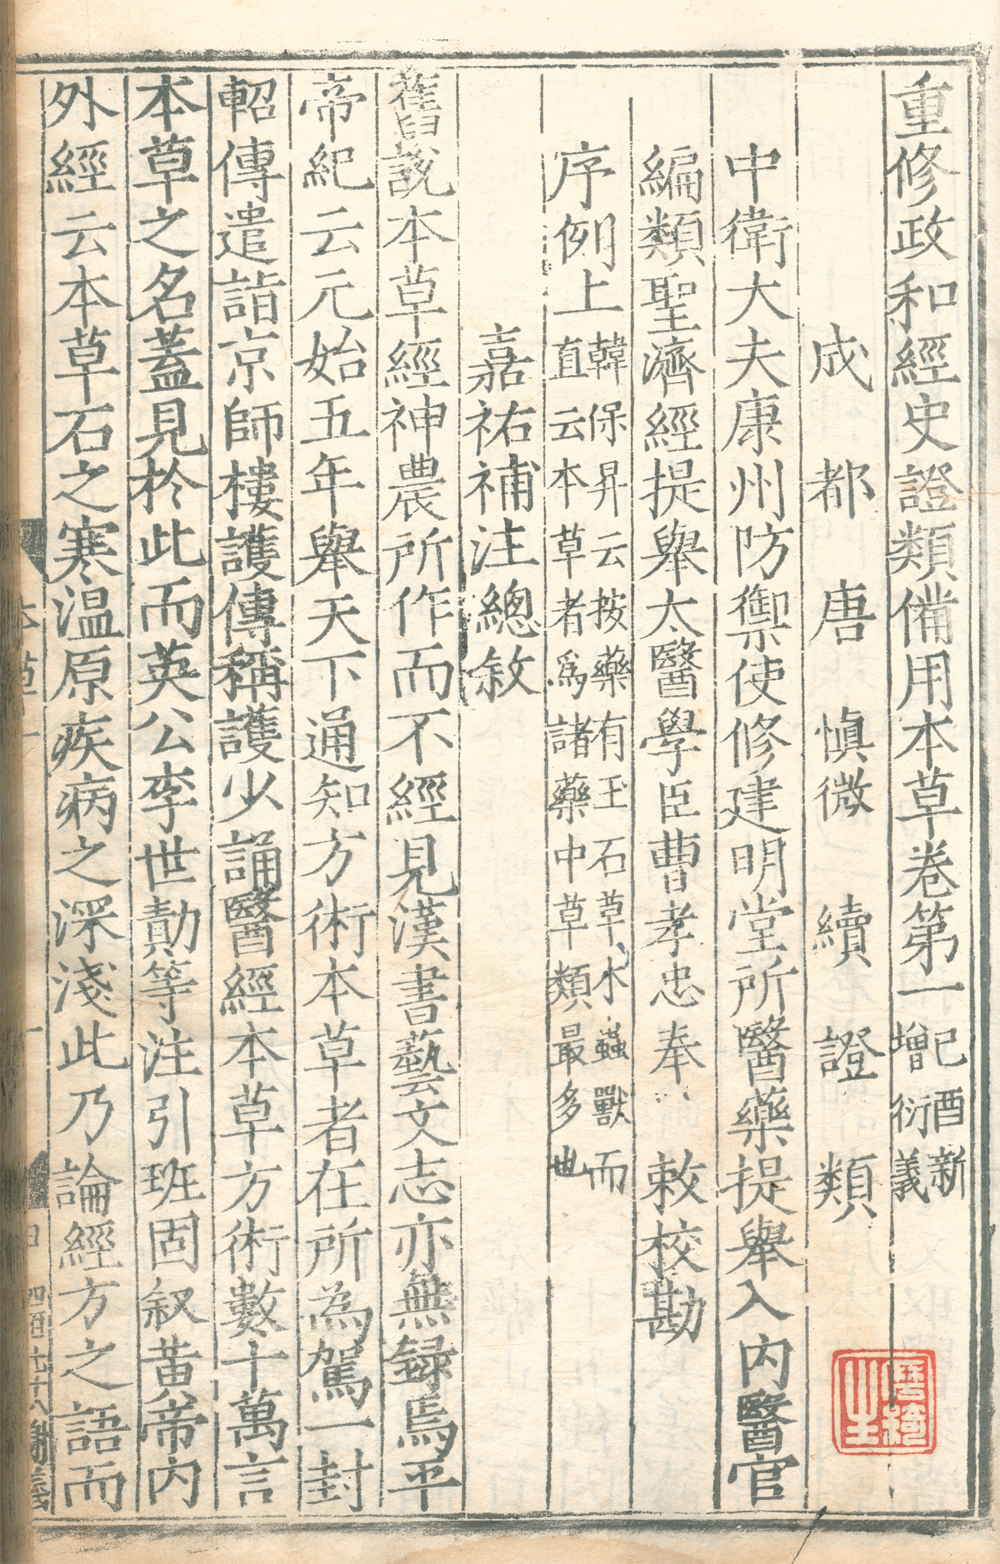 重修政和經史證類備用本草卷第一己酉新增衍義
成都唐慎微續證類
中衛大夫康州防禦使修建明堂所醫藥提舉入內醫官
編類聖濟經提舉太醫學臣曹孝忠奉敕校勘
序例上韓保昇云按藥有玉石草木蟲獸而直云本草者為諸藥中草類最多也
嘉祐補注總敘
舊說本草經神農所作而不經見漢書藝文志亦無録焉平
帝紀云元始五年舉天下通知方術本草者在所為駕一封
軺傳遣詣京師樓護傳稱護少誦醫經本草方術數十萬言
本草之名蓋見於此而英公李世勣等注引班固叙黄帝内
外經云本草石之寒温原疾病之深淺此乃論經方之語而